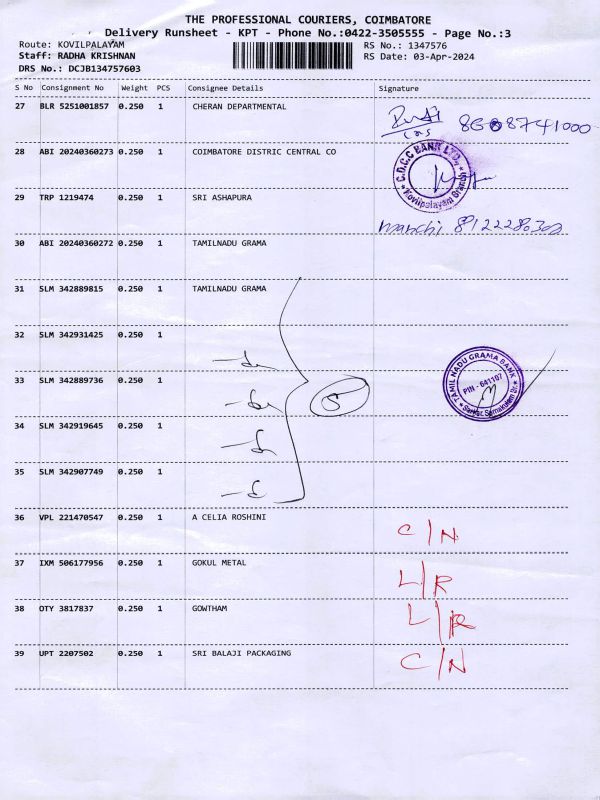 THE PROFESSIONAL COURIERS, COIMBATORE
Delivery Runsheet - KPT - Phone No.:0422-3505555 - Page No.:3
Route: KOVILPALAYAM RS No.: 1347576
Staff: RADHA KRISHNAN RS Date: 03-Apr-2024
DRS No.: DCJB134757603
S No Consignment No Weight PCS Consignee Details Signature
27 BLR 5251001857 0.250 1 CHERAN DEPARTMENTAL
28 ABI 20240360273 0.250 1 COIMBATORE DISTRIC CENTRAL CO
C.D.C.C BANK LTD., Kovilpalayam Branch
29 TRP 1219474 0.250 1 SRI ASHAPURA
30 ABI 20240360272 0.250 1 TAMILNADU GRAMA
31 SLM 342889815 0.250 1 TAMILNADU GRAMA
32 SLM 342931425 0.250 1
33 SLM 342889736 0.250 1
TAMIL NADU GRAMA BANK
PIN - 641107
34 SLM 342919645 0.250 1
35 SLM 342907749 0.250 1
36 VPL 221470547 0.250 1 A CELIA ROSHINI C/N
37 IXM 506177956 0.250 1 GOKUL METAL L/R
38 OTY 3817837 0.250 1 GOWTHAM L/R
39 UPT 2207502 0.250 1 SRI BALAJI PACKAGING C/N